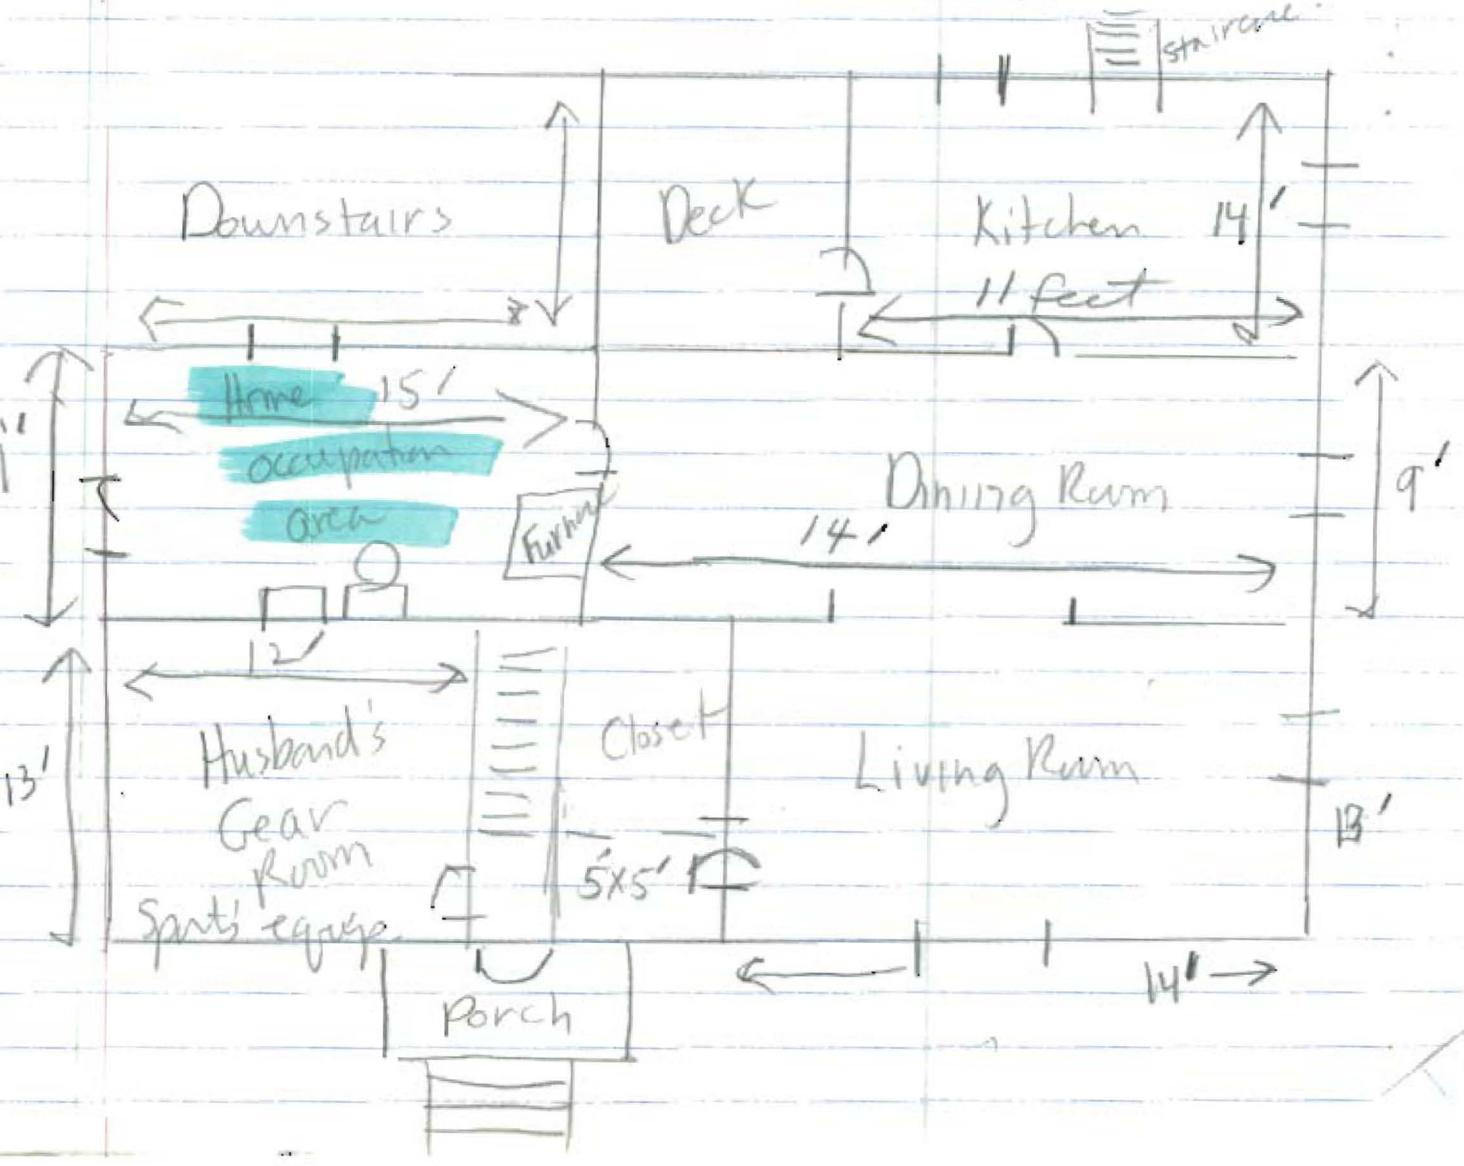 staircase
Downstairs
Deck
Kitchen
14'
11 feet
Home
15'
occupation
area
Furnace
Dining Room
9'
14'
12'
Husband's
Gear
Room
Sports equip.
13'
Closet
5'x5'
Living Room
13'
14'
Porch